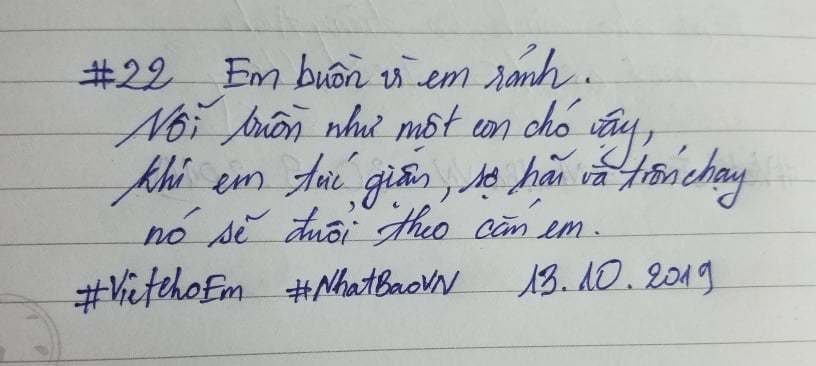 #22 Em buồn vì em rảnh.
Nỗi buồn như một con chó vậy,
khi em tức giận, sợ hãi và trốn chạy
nó sẽ đuổi theo cắn em.
#ViếtchoEm #NhatBaoVN 13.10.2019